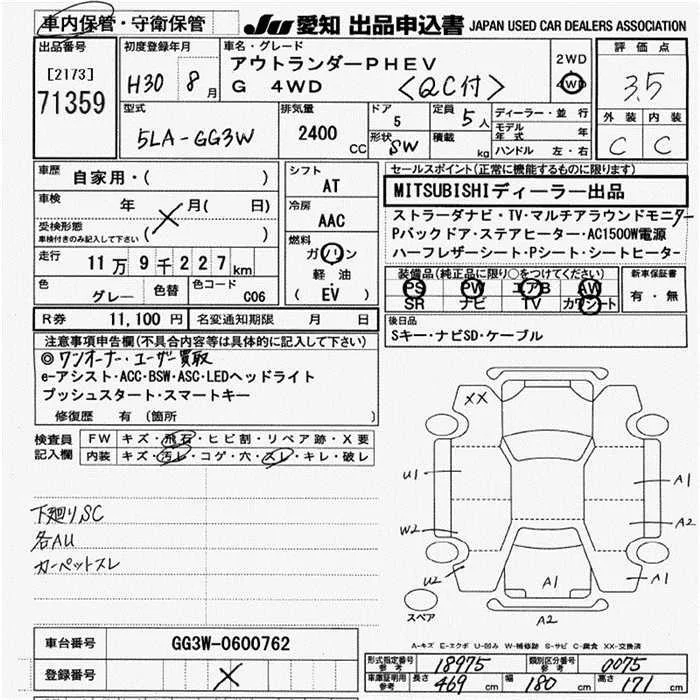 車内保管・守衛保管 JU 愛知 出品申込書 JAPAN USED CAR DEALERS ASSOCIATION
出品番号 [2173] 71359
初度登録年月 H30 8月
車名・グレード アウトランダーPHEV
G 4WD <QC付>
2WD
4WD
評価点 3.5
外装 内装
C C
型式 5LA-GG3W
排気量 2400 CC
ドア 5
形状 SW
定員 5人
積載 kg
ディーラー・並行
モデル年式 年
ハンドル 左・右
車歴 自家用・( )
車検 年 月( 日)
受検形態
車検付きのみ記入して下さい ( )
走行 11万9千227km
色 グレー 色替 色コード C06
シフト AT
冷房 AAC
燃料 ガソリン
軽・油
( EV )
セールスポイント(正常に機能するものに限ります)
MITSUBISHIディーラー出品
ストラーダナビ・TV・マルチアラウンドモニター
Pバックドア・ステアヒーター・AC1500W電源
ハーフレザーシート・Pシート・シートヒーター
装備品(純正品に限り○をつけてください)
PS PW エアB AW
SR ナビ TV カワシート
新車保証書
有・無
R券 11,100円 名変通知期限 月 日
後日品
Sキー・ナビSD・ケーブル
注意事項申告欄(不具合内容等は具体的に記入して下さい)
◎ワンオーナー・ユーザー買取
e-アシスト・ACC・BSW・ASC・LEDヘッドライト
プッシュスタート・スマートキー
修復歴 有 (箇所 )
検査員記入欄
FW キズ・飛石・ヒビ割・リペア跡・X要
内装 キズ・汚レ・コゲ・穴・スレ・キレ・破レ
下廻りSC
各AU
カーペットスレ
XX
U1
A1
W2
A2
U2
A1
A1
スペア
A2
A-キズ E-エクボ U-凹み W-補修跡 S-サビ C-腐食 XX-交換済
車台番号 GG3W-0600762
登録番号
形式指定番号 参考 18975 類別区分番号 参考 0075
車庫証明 参考 長さ 469 cm 幅 180 cm 高さ 171 cm